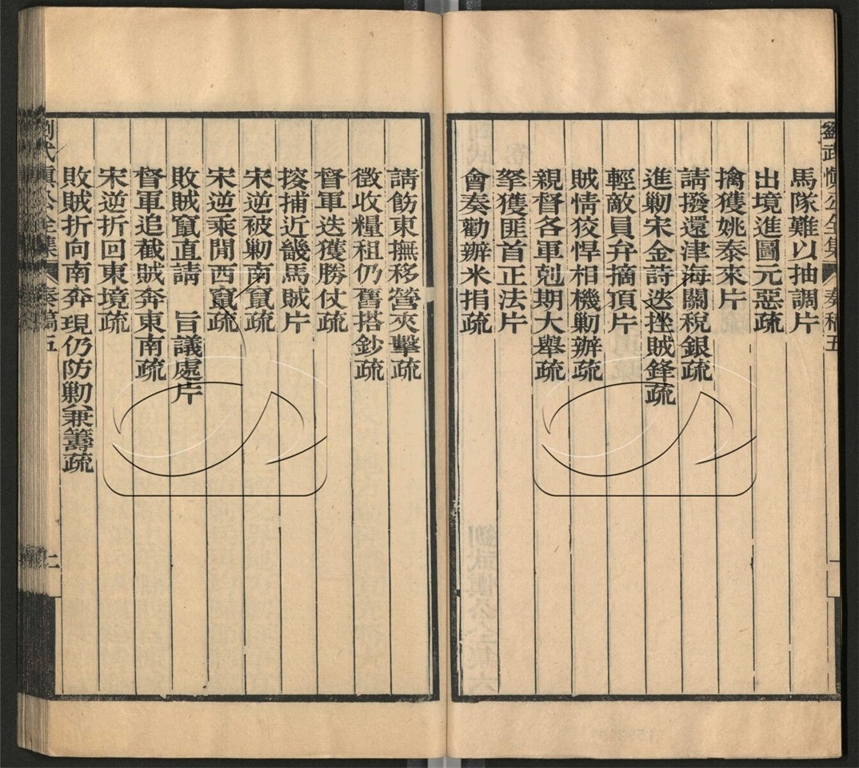 劉武慎公全集 奏稿五
馬隊難以抽調片
出境進圖元惡疏
擒獲姚泰來片
請撥還津海關稅銀疏
進剿宋金詩迭挫賊鋒疏
輕敵員弁摘頂片
賊情狡悍相機剿辦疏
親督各軍剋期大舉疏
拏獲匪首正法片
會奏勸辦米捐疏
請飭東撫移營夾擊疏
徵收糧租仍舊搭鈔疏
督軍迭獲勝仗疏
搜捕近畿馬賊片
宋逆被剿南竄疏
宋逆乘閒西竄疏
敗賊竄直請 旨議處片
督軍追截賊奔東南疏
宋逆折回東境疏
敗賊折向南奔現仍防剿兼籌疏
劉武慎公全集 奏稿五 二